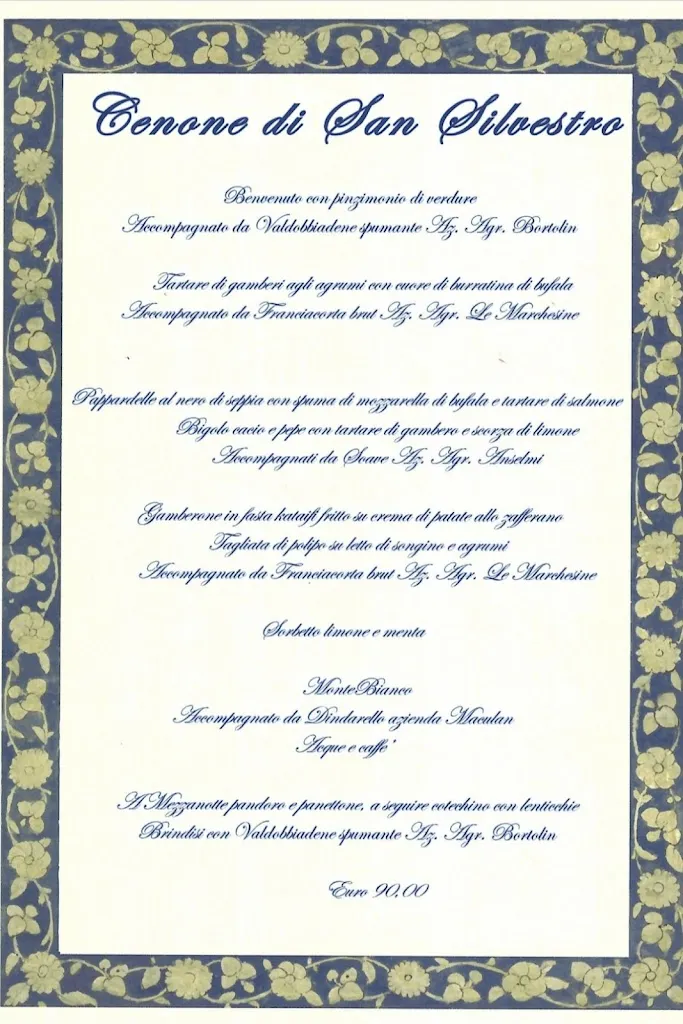 Cenone di San Silvestro
Benvenuto con pinzimonio di verdure
Accompagnato da Valdobbiadene spumante Az. Agr. Bortolin
Tartare di gamberi agli agrumi con cuore di burratina di bufala
Accompagnato da Franciacorta brut Az. Agr. Le Marchesine
Pappardelle al nero di seppia con spuma di mozzarella di bufala e tartare di salmone
Bigolo cacio e pepe con tartare di gambero e scorza di limone
Accompagnati da Soave Az. Agr. Anselmi
Gamberone in fasta kataifi fritto su crema di patate allo zafferano
Tagliata di polipo su letto di songino e agrumi
Accompagnato da Franciacorta brut Az. Agr. Le Marchesine
Sorbetto limone e menta
MonteBianco
Accompagnato da Dindarello azienda Maculan
Acque e caffe'
A Mezzanotte pandoro e panettone, a seguire cotechino con lenticchie
Brindisi con Valdobbiadene spumante Az. Agr. Bortolin
Euro 90,00